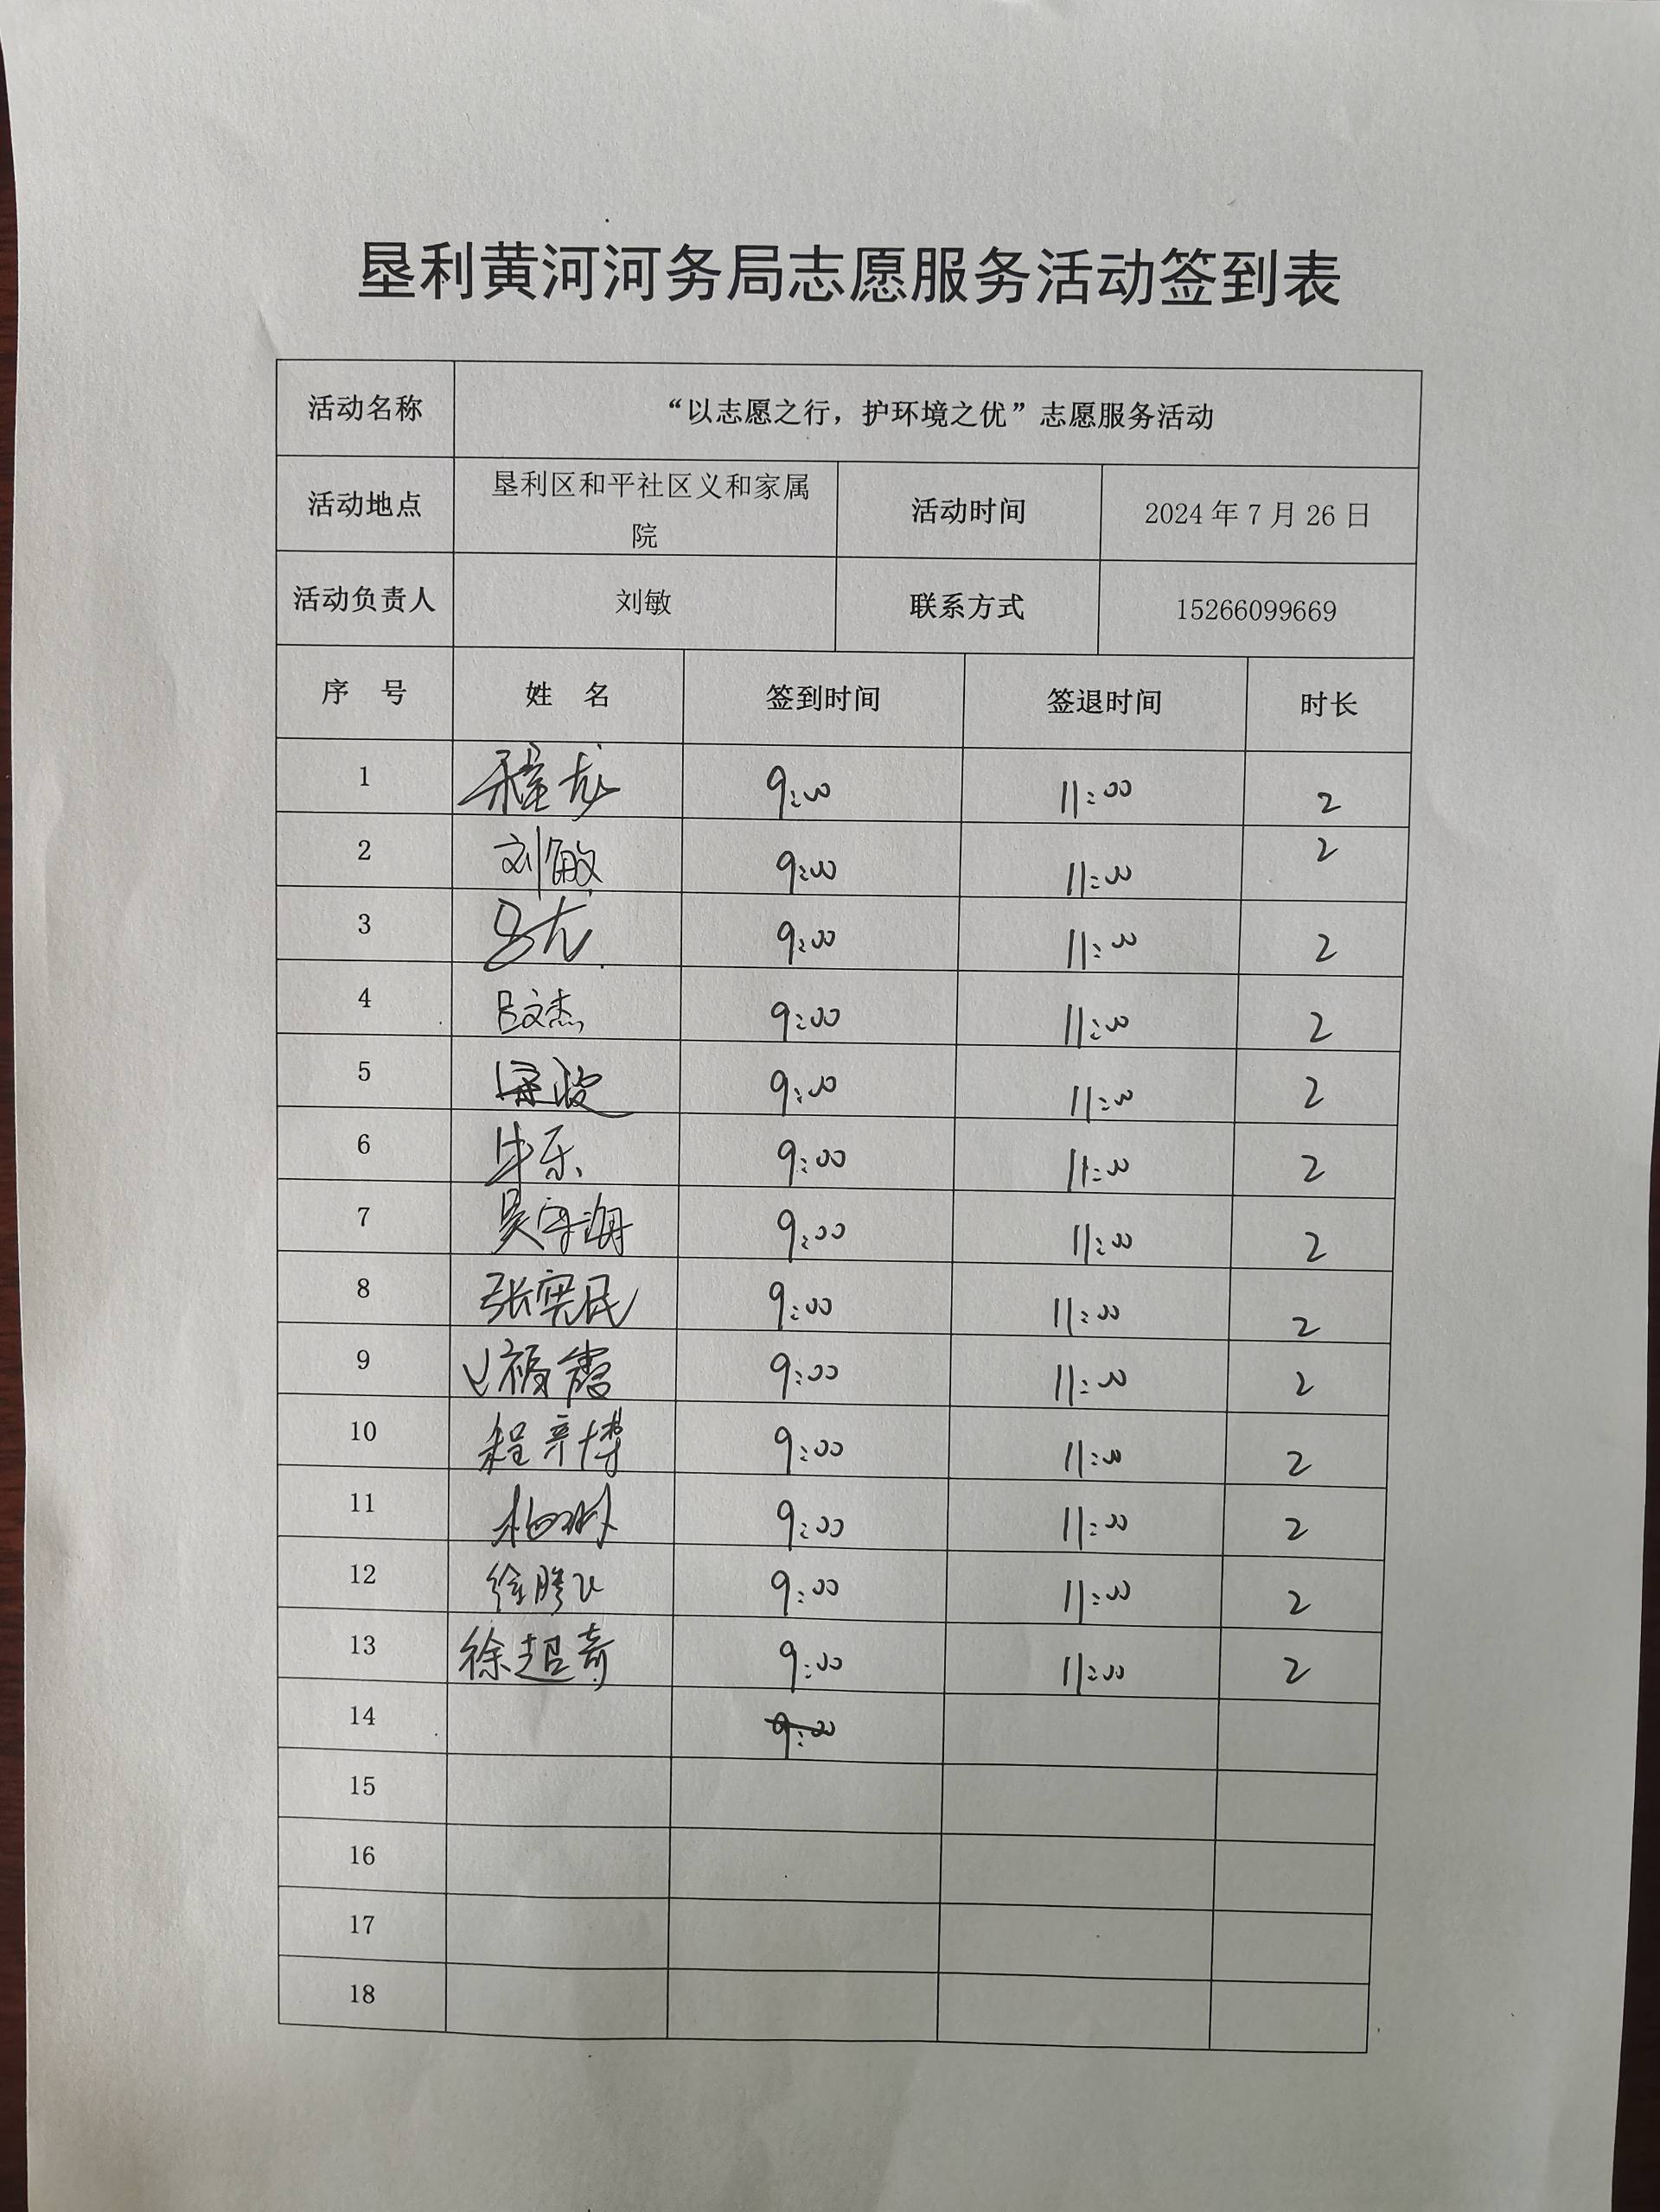 垦利黄河河务局志愿服务活动签到表
活动名称 “以志愿之行，护环境之优”志愿服务活动
活动地点 垦利区和平社区义和家属院 活动时间 2024年7月26日
活动负责人 刘敏 联系方式 15266099669
序 号 姓 名 签到时间 签退时间 时长
1 9:00 11:00 2
2 刘敏 9:00 11:00 2
3 9:00 11:00 2
4 吕文杰 9:00 11:00 2
5 9:00 11:00 2
6 牛乐 9:00 11:00 2
7 吴守海 9:00 11:00 2
8 张宪民 9:00 11:00 2
9 9:00 11:00 2
10 程彦博 9:00 11:00 2
11 9:00 11:00 2
12 徐腾飞 9:00 11:00 2
13 徐超奇 9:00 11:00 2
14 9:00
15
16
17
18